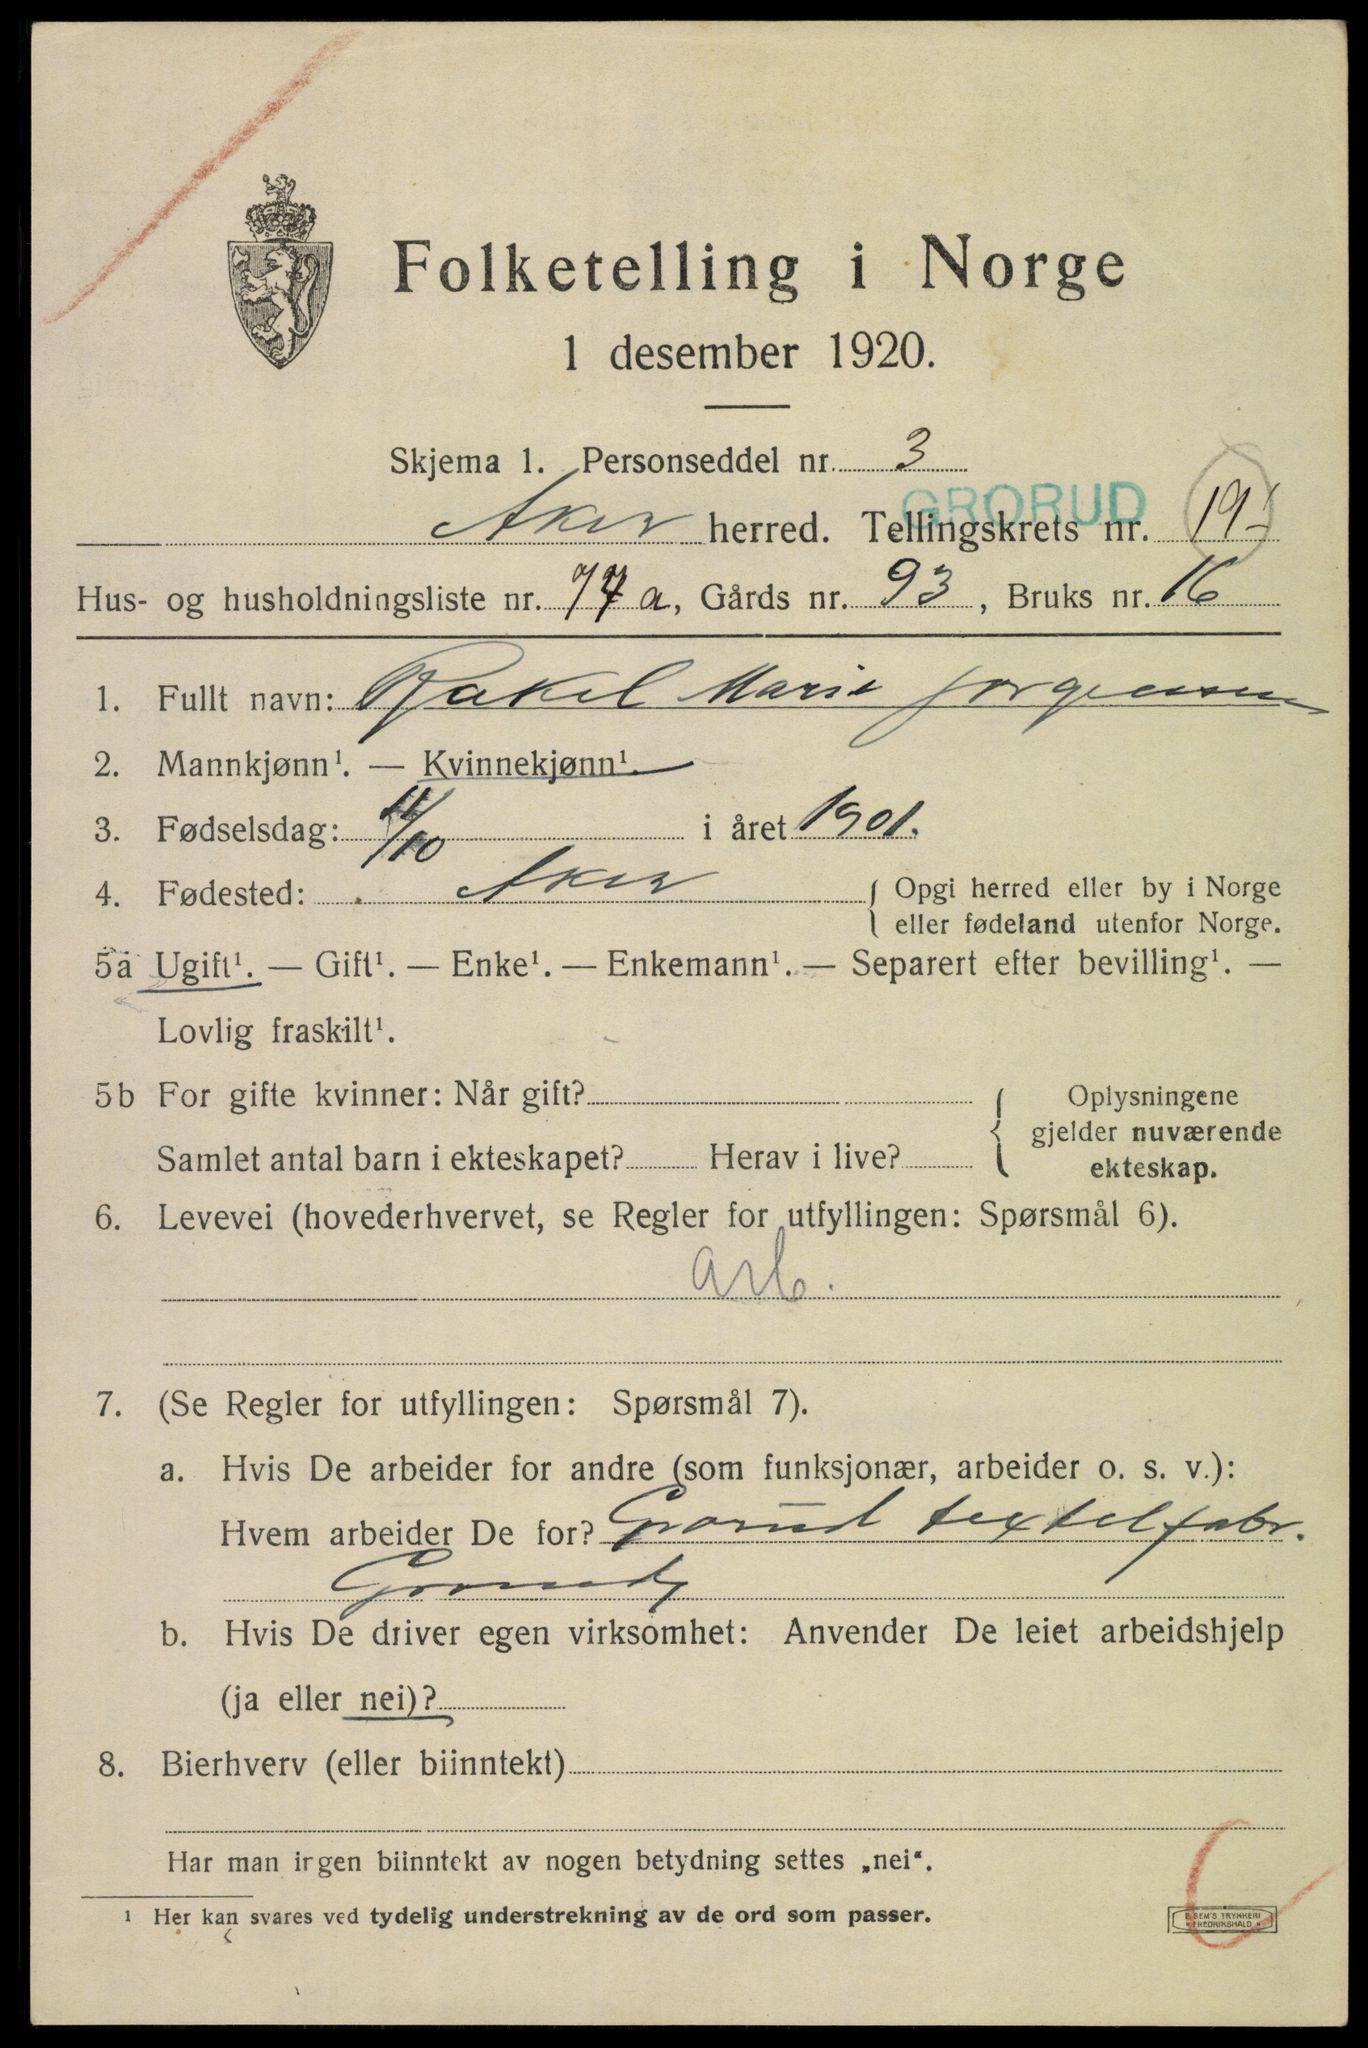 Folketelling i Norge
1 desember 1920.
Skjema 1. Personseddel nr. 3
GRORUD
Aker herred. Tellingskrets nr. 19
Hus- og husholdningsliste nr. 77 a, Gårds nr. 93, Bruks nr. 16
1. Fullt navn: Rakel Marie Jorgensen
2. Mannkjønn¹. — Kvinnekjønn¹.
3. Fødselsdag: 11/10 i året 1901.
4. Fødested: Aker { Opgi herred eller by i Norge
eller fødeland utenfor Norge.
5a Ugift¹. — Gift¹. — Enke¹. — Enkemann¹. — Separert efter bevilling¹. —
Lovlig fraskilt¹.
5b For gifte kvinner: Når gift?
Samlet antal barn i ekteskapet? Herav i live?
{ Oplysningene
gjelder nuværende
ekteskap.
6. Levevei (hovederhvervet, se Regler for utfyllingen: Spørsmål 6).
arb.
7. (Se Regler for utfyllingen: Spørsmål 7).
a. Hvis De arbeider for andre (som funksjonær, arbeider o. s. v.):
Hvem arbeider De for? Grorud textelfabr.
Grorud
b. Hvis De driver egen virksomhet: Anvender De leiet arbeidshjelp
(ja eller nei)?
8. Bierhverv (eller biinntekt)
Har man irgen biinntekt av nogen betydning settes „nei“.
¹ Her kan svares ved tydelig understrekning av de ord som passer.
E. SEM'S TRYKKERI
FREDRIKSHALD